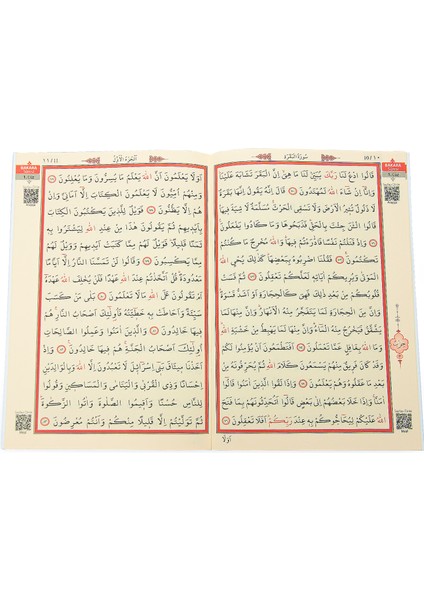 سُورَةُ الْبَقَرَةِ
10 / ١٠
BAKARA
قَالُوا ادْعُ لَنَا رَبَّكَ يُبَيِّنْ لَنَا مَا هِيَ اِنَّ الْبَقَرَ تَشَابَهَ عَلَيْنَا
وَاِنَّا اِنْ شَاءَ اللهُ لَمُهْتَدُونَ قَالَ اِنَّهُ يَقُولُ اِنَّهَا بَقَرَةٌ
لَا ذَلُولٌ تُثِيرُ الْاَرْضَ وَلَا تَسْقِي الْحَرْثَ مُسَلَّمَةٌ لَا شِيَةَ فِيهَا
قَالُوا الْـٰنَ جِئْتَ بِالْحَقِّ فَذَبَحُوهَا وَمَا كَادُوا يَفْعَلُونَ
وَاِذْ قَتَلْتُمْ نَفْسًا فَادّٰرَءْتُمْ فِيهَا وَاللهُ مُخْرِجٌ مَا كُنْتُمْ
تَكْتُمُونَ فَقُلْنَا اضْرِبُوهُ بِبَعْضِهَا كَذٰلِكَ يُحْيِ اللهُ
الْمَوْتٰى وَيُرِيكُمْ اٰيَاتِهِ لَعَلَّكُمْ تَعْقِلُونَ ثُمَّ قَسَتْ
قُلُوبُكُمْ مِنْ بَعْدِ ذٰلِكَ فَهِيَ كَالْحِجَارَةِ اَوْ اَشَدُّ قَسْوَةً
وَاِنَّ مِنَ الْحِجَارَةِ لَمَا يَتَفَجَّرُ مِنْهُ الْاَنْهَارُ وَاِنَّ مِنْهَا لَمَا
يَشَّقَّقُ فَيَخْرُجُ مِنْهُ الْمَاءُ وَاِنَّ مِنْهَا لَمَا يَهْبِطُ مِنْ خَشْيَةِ اللهِ
وَمَا اللهُ بِغَافِلٍ عَمَّا تَعْمَلُونَ اَفَتَطْمَعُونَ اَنْ يُؤْمِنُوا لَكُمْ
وَقَدْ كَانَ فَرِيقٌ مِنْهُمْ يَسْمَعُونَ كَلَامَ اللهِ ثُمَّ يُحَرِّفُونَهُ مِنْ
بَعْدِ مَا عَقَلُوهُ وَهُمْ يَعْلَمُونَ وَاِذَا لَقُوا الَّذِينَ اٰمَنُوا قَالُوا
اٰمَنَّا وَاِذَا خَلَا بَعْضُهُمْ اِلٰى بَعْضٍ قَالُوا اَتُحَدِّثُونَهُمْ بِمَا فَتَحَ
اللهُ عَلَيْكُمْ لِيُحَاجُّوكُمْ بِهِ عِنْدَ رَبِّكُمْ اَفَلَا تَعْقِلُونَ
اَوَلَا
اَلْجُزْءُ الْاَوَّلُ
١١ / 11
BAKARA
اَوَلَا يَعْلَمُونَ اَنَّ اللهَ يَعْلَمُ مَا يُسِرُّونَ وَمَا يُعْلِنُونَ
وَمِنْهُمْ اُمِّيُّونَ لَا يَعْلَمُونَ الْكِتَابَ اِلَّا اَمَانِيَّ وَاِنْ
هُمْ اِلَّا يَظُنُّونَ فَوَيْلٌ لِلَّذِينَ يَكْتُبُونَ الْكِتَابَ
بِاَيْدِيهِمْ ثُمَّ يَقُولُونَ هٰذَا مِنْ عِنْدِ اللهِ لِيَشْتَرُوا بِهِ
ثَمَنًا قَلِيلًا فَوَيْلٌ لَهُمْ مِمَّا كَتَبَتْ اَيْدِيهِمْ وَوَيْلٌ لَهُمْ
مِمَّا يَكْسِبُونَ وَقَالُوا لَنْ تَمَسَّنَا النَّارُ اِلَّا اَيَّامًا
مَعْدُودَةً قُلْ اَتَّخَذْتُمْ عِنْدَ اللهِ عَهْدًا فَلَنْ يُخْلِفَ اللهُ عَهْدَهُ
اَمْ تَقُولُونَ عَلَى اللهِ مَا لَا تَعْلَمُونَ بَلٰى مَنْ كَسَبَ
سَيِّئَةً وَاَحَاطَتْ بِهِ خَطِيئَتُهُ فَاُولٰئِكَ اَصْحَابُ النَّارِ هُمْ
فِيهَا خَالِدُونَ وَالَّذِينَ اٰمَنُوا وَعَمِلُوا الصَّالِحَاتِ
اُولٰئِكَ اَصْحَابُ الْجَنَّةِ هُمْ فِيهَا خَالِدُونَ وَاِذْ
اَخَذْنَا مِيثَاقَ بَنِي اِسْرَائِيلَ لَا تَعْبُدُونَ اِلَّا اللهَ وَبِالْوَالِدَيْنِ
اِحْسَانًا وَذِي الْقُرْبٰى وَالْيَتَامٰى وَالْمَسَاكِينِ وَقُولُوا
لِلنَّاسِ حُسْنًا وَاَقِيمُوا الصَّلٰوةَ وَاٰتُوا الزَّكٰوةَ
ثُمَّ تَوَلَّيْتُمْ اِلَّا قَلِيلًا مِنْكُمْ وَاَنْتُمْ مُعْرِضُونَ